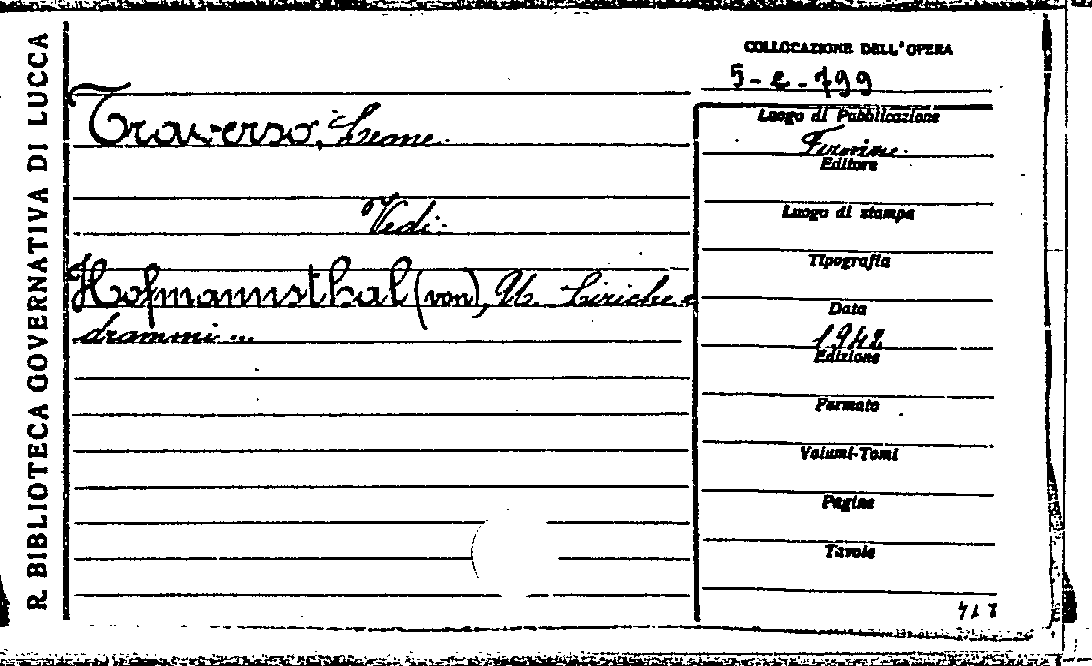 R. BIBLIOTECA GOVERNATIVA DI LUCCA
COLLOCAZIONE DELL'OPERA
5-e-199
Traverso, Leone.
Vedi:
Hofmannsthal (von), U. Liriche e
drammi...
Luogo di Pubblicazione
Firenze.
Editore
Luogo di stampa
Tipografia
Data
1942
Edizione
Formato
Volumi-Tomi
Pagine
Tavole